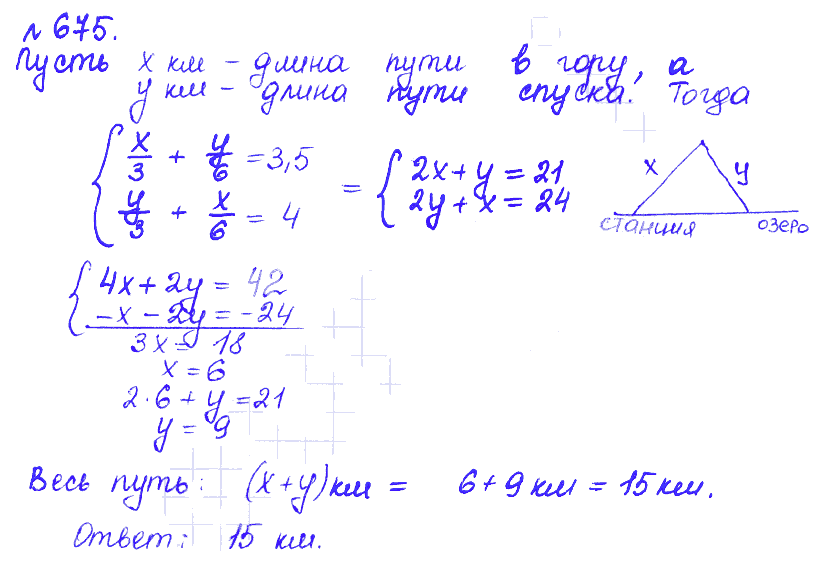 № 675.
Пусть x км – длина пути в гору, а
y км – длина пути спуска. Тогда
x/3 + y/6 = 3,5
y/3 + x/6 = 4
= { 2x + y = 21
2y + x = 24
x y
станция озеро
4x + 2y = 42
-x - 2y = -24
3x = 18
x = 6
2·6 + y = 21
y = 9
Весь путь: (x+y) км = 6 + 9 км = 15 км.
Ответ: 15 км.